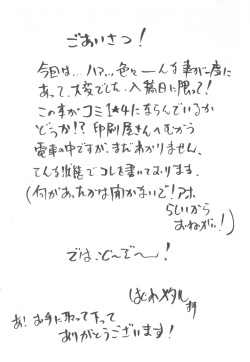 ごあいさつ!
今回は…ハァ…色々ーんな事が一度に
あって、大変でした、入稿日に限って!
この本がコミ1*4にならんでいるか
どうか!? 印刷屋さんへむかう
電車の中ですが、まだわかりません、
そんな状態でコレを書いております。
(何があったかは聞かないで!アホ
らしいから
おねがい!)
では、ど〜ぞ〜!
はとれメタル 拝
あ!お手に取って下って
ありがとうございます!